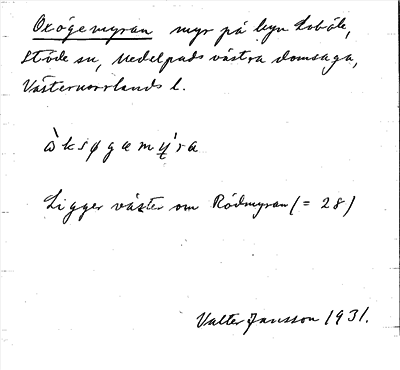 Oxögemyran myr på byn Loböle,
Stöde sn, Medelpads västra domsaga,
Västernorrlands l.
ὼksøgæmý̨ra
Ligger väster om Rödmyran (= 28)
Valter Jansson 1931.